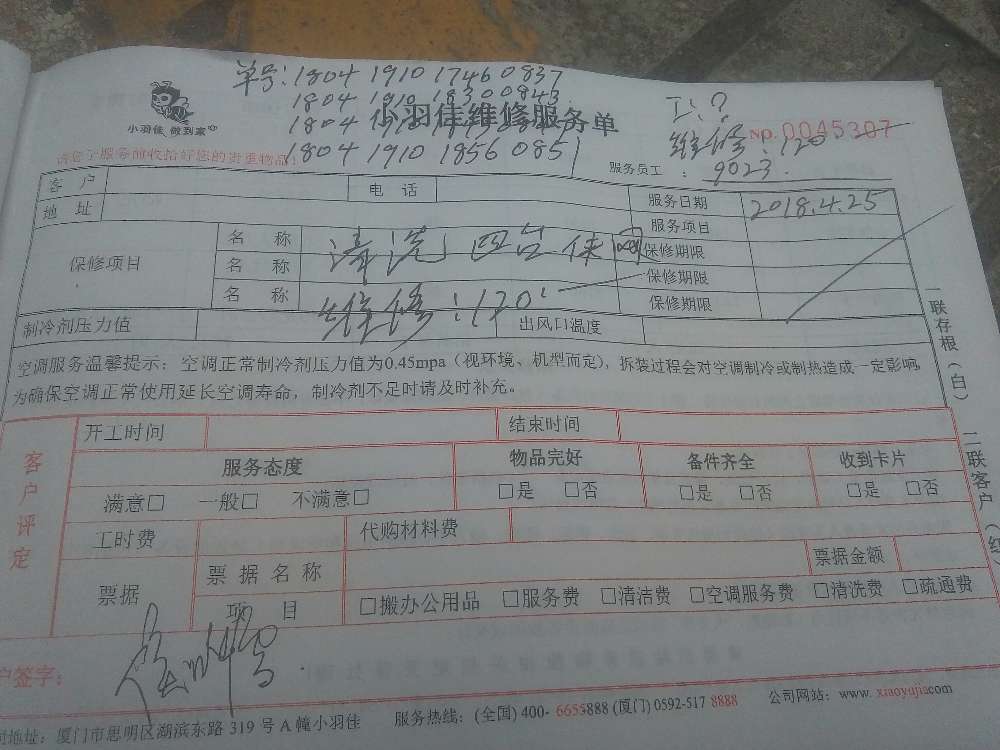 单号:1804 1910 1746 0837
1804 1910 1830 0843
1804 1910
1804 1910 1856 0851
小羽佳 做到家
小羽佳维修服务单
No.0045307
维修:120
请您于服务前收拾好您的贵重物品!
服务员工:9023.
客户 电话 服务日期 2018.4.25
地址 服务项目
保修项目 名称 清洗四台 保修期限
名称 保修期限
名称 维修:120 保修期限
制冷剂压力值 出风口温度
空调服务温馨提示:空调正常制冷剂压力值为0.45mpa(视环境、机型而定),拆装过程会对空调制冷或制热造成一定影响,
为确保空调正常使用延长空调寿命,制冷剂不足时请及时补充。
一联存根(白) 二联客户(红)
客户评定
开工时间 结束时间
服务态度 物品完好 备件齐全 收到卡片
满意□ 一般□ 不满意□ □是 □否 □是 □否 □是 □否
工时费 代购材料费
票据 票据名称 票据金额
项目 □搬办公用品 □服务费 □清洁费 □空调服务费 □清洗费 □疏通费
户签字:
地址:厦门市思明区湖滨东路319号A幢小羽佳 服务热线:(全国)400-6655888 (厦门)0592-517 8888 公司网站:www.xiaoyujia.com